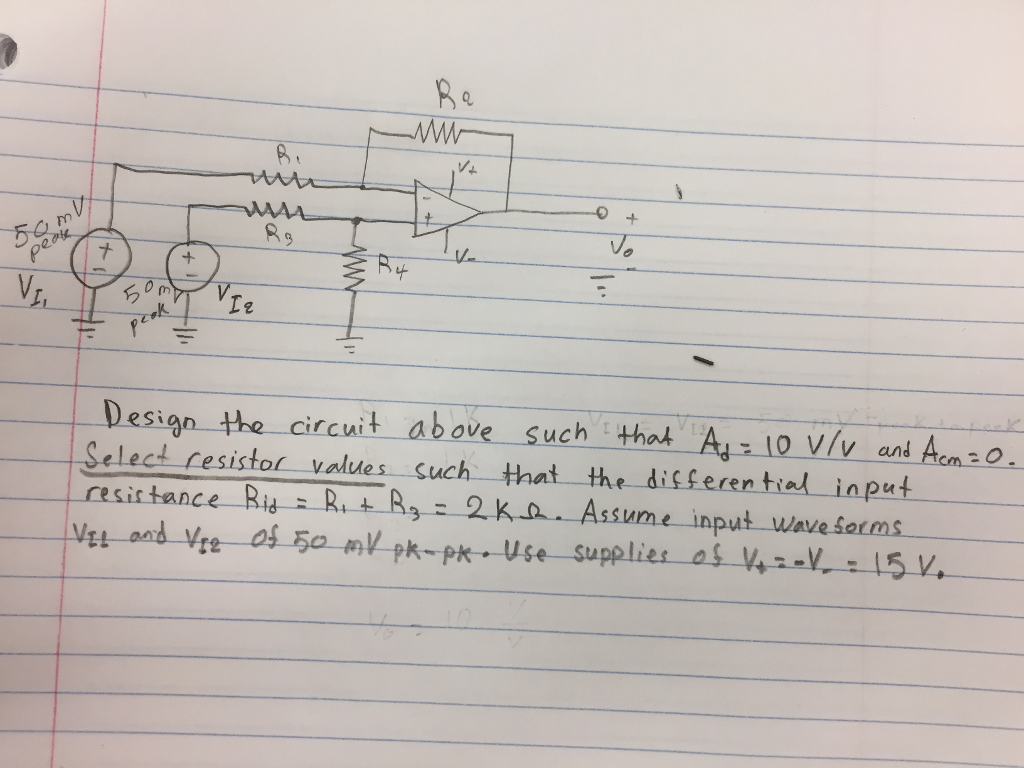 R2
V+
R1
-
+
R3
V-
+
Vo
-
R4
50 mV
peak
+
-
VI1
+
-
50 mV
peak
VI2
Design the circuit above such that Ad = 10 V/V and Acm = 0.
Select resistor values such that the differential input
resistance Rid = R1 + R3 = 2 KΩ. Assume input waveforms
VI1 and VI2 of 50 mV pk-pk. Use supplies of V+ = -V- = 15 V.